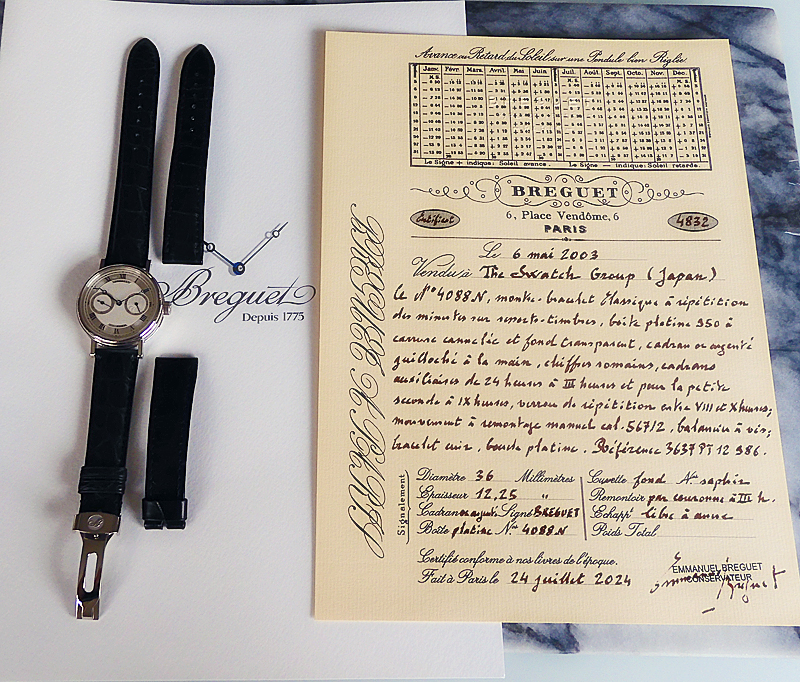 Breguet
Depuis 1775
Avance ou Retard du Soleil sur une Pendule bien Réglée
Janv. Févr. Mars. Avril. Mai Juin Juil. Août. Sept. Octo. Nov. Déc.
Le Signe + indique: Soleil avance. Le Signe — indique: Soleil retarde.
BREGUET
Certificat 6, Place Vendôme, 6 4832
PARIS
Le 6 mai 2003
Vendu à The Swatch Group (Japan)
le N° 4088N, montre-bracelet Classique à répétition
des minutes sur ressorts-timbres, boîte platine 950 à
carrure cannelée et fond transparent, cadran or argenté
guilloché à la main, chiffres romains, cadrans
auxiliaires de 24 heures à III heures et pour la petite
seconde à IX heures, verrou de répétition entre VIII et X heures;
mouvement à remontage manuel cal. 567/2, balancier à vis;
bracelet cuir, boucle platine. Référence 3637 PT 12 986.
Signalement
Diamètre 36 Millimètres
Epaisseur 12,25 "
Cadran Signé BREGUET
Boîte platine N° 4088N
Cuvette fond saphir
Remontoir par couronne à III h.
Echappt libre à ancre
Poids Total
Certifié conforme à nos livres de l'époque.
Fait à Paris le 24 juillet 2024
EMMANUEL BREGUET
CONSERVATEUR